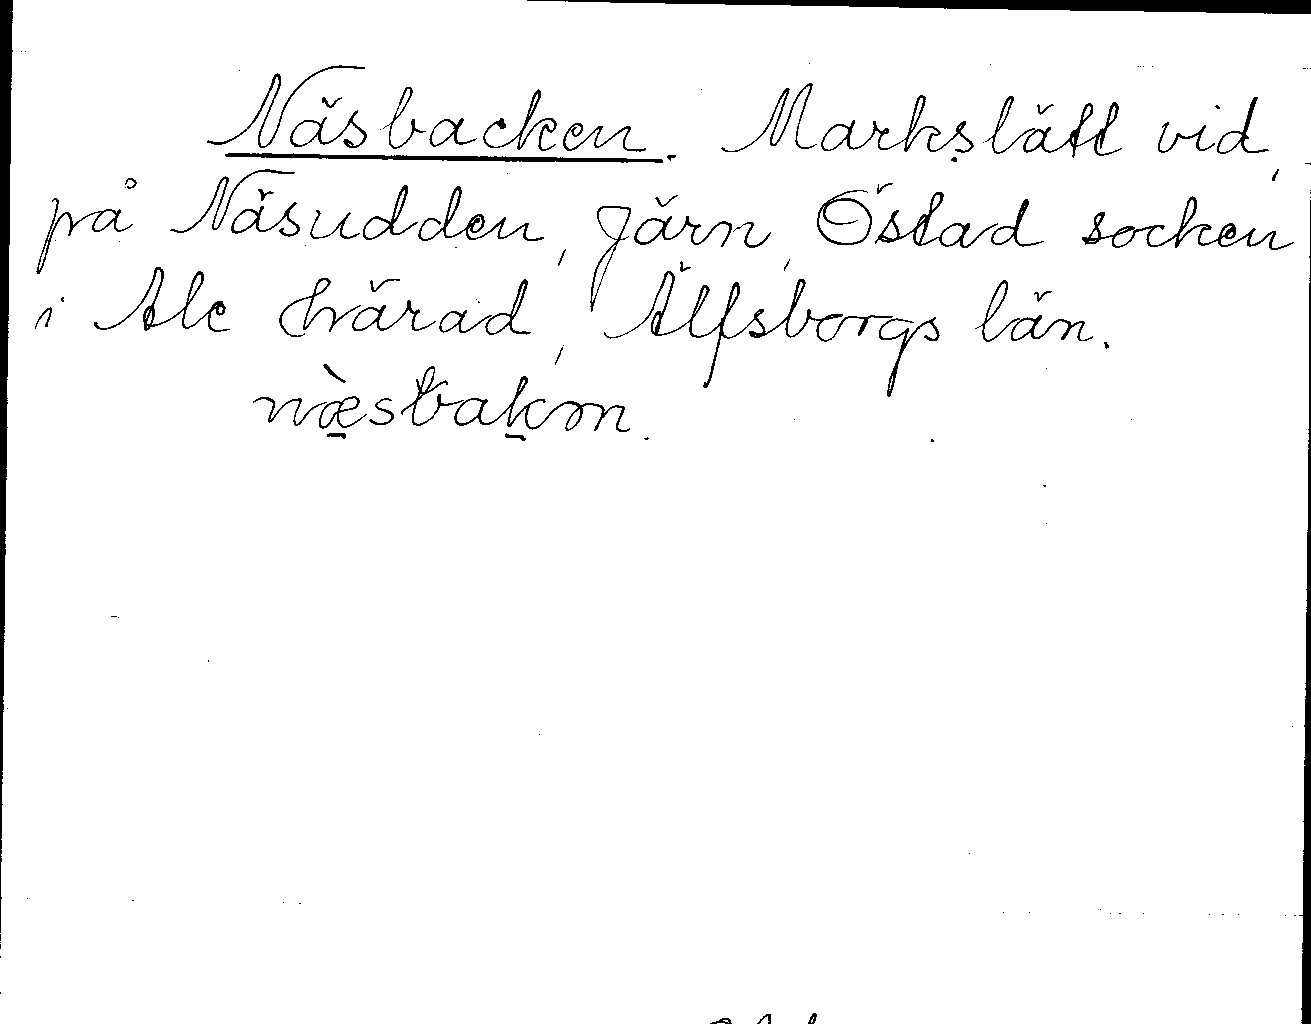 Näsbacken. Markslätt vid,
på Näsudden, Järn, Östad socken
i Ale härad, Älfsborgs län.
næ̀sbakɷn.